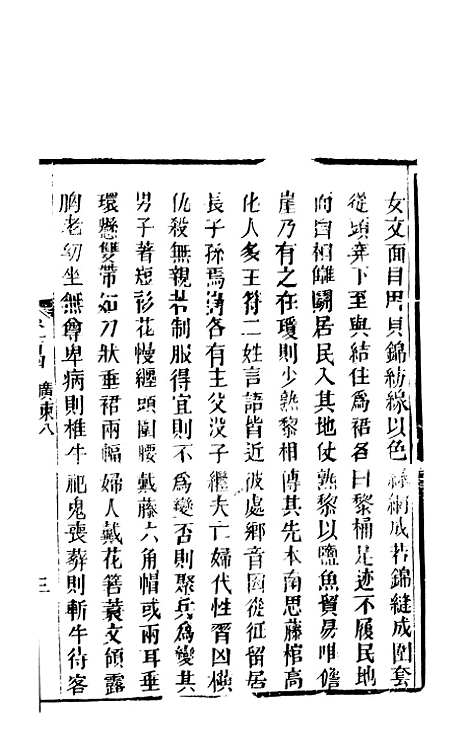 女文面目用貝錦紡線以色絲織成若錦縫成圍套
從頭穿下至與結住爲裙各曰黎桶足迹不履民地
而自相讎鬭居民入其地仗熟黎以鹽魚貿易唯儋
崖乃有之在瓊則少熟黎相傳其先本南思藤梧高
化人多王符二姓言語皆近彼處鄉音因從征留居
長子孫焉 各有主父沒子繼夫亡婦代性習凶橫
仇殺無親若制服得宜則不爲變否則聚兵爲變其
男子著短衫花慢纏頭圍腰戴藤六角帽或兩耳垂
環懸雙帶如刀狀垂裙兩幅婦人戴花簪裳文領露
胸老幼坐無尊卑病則椎牛祀鬼喪葬則斬牛待客
廣東八
三